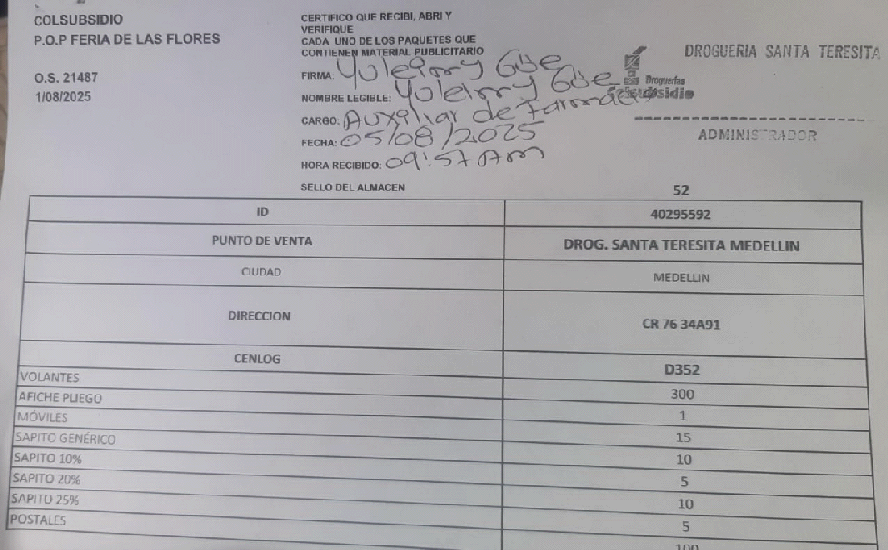 COLSUBSIDIO
P.O.P FERIA DE LAS FLORES
O.S. 21487
1/08/2025
CERTIFICO QUE RECIBI, ABRI Y
VERIFIQUE
CADA UNO DE LOS PAQUETES QUE
CONTIENEN MATERIAL PUBLICITARIO
FIRMA: Yuleimy Güe
NOMBRE LEGIBLE: Yuleimy Güe
CARGO: Auxiliar de Farmacia
FECHA: 05/08/2025
HORA RECIBIDO: 09:57 Am
SELLO DEL ALMACEN
DROGUERIA SANTA TERESITA
Droguerías
Colsubsidio
ADMINISTRADOR
52
ID 40295592
PUNTO DE VENTA DROG. SANTA TERESITA MEDELLIN
CIUDAD MEDELLIN
DIRECCION CR 76 34A91
CENLOG D352
VOLANTES 300
AFICHE PLIEGO 1
MÓVILES 15
SAPITO GENÉRICO 10
SAPITO 10% 5
SAPITO 20% 10
SAPITO 25% 5
POSTALES 100